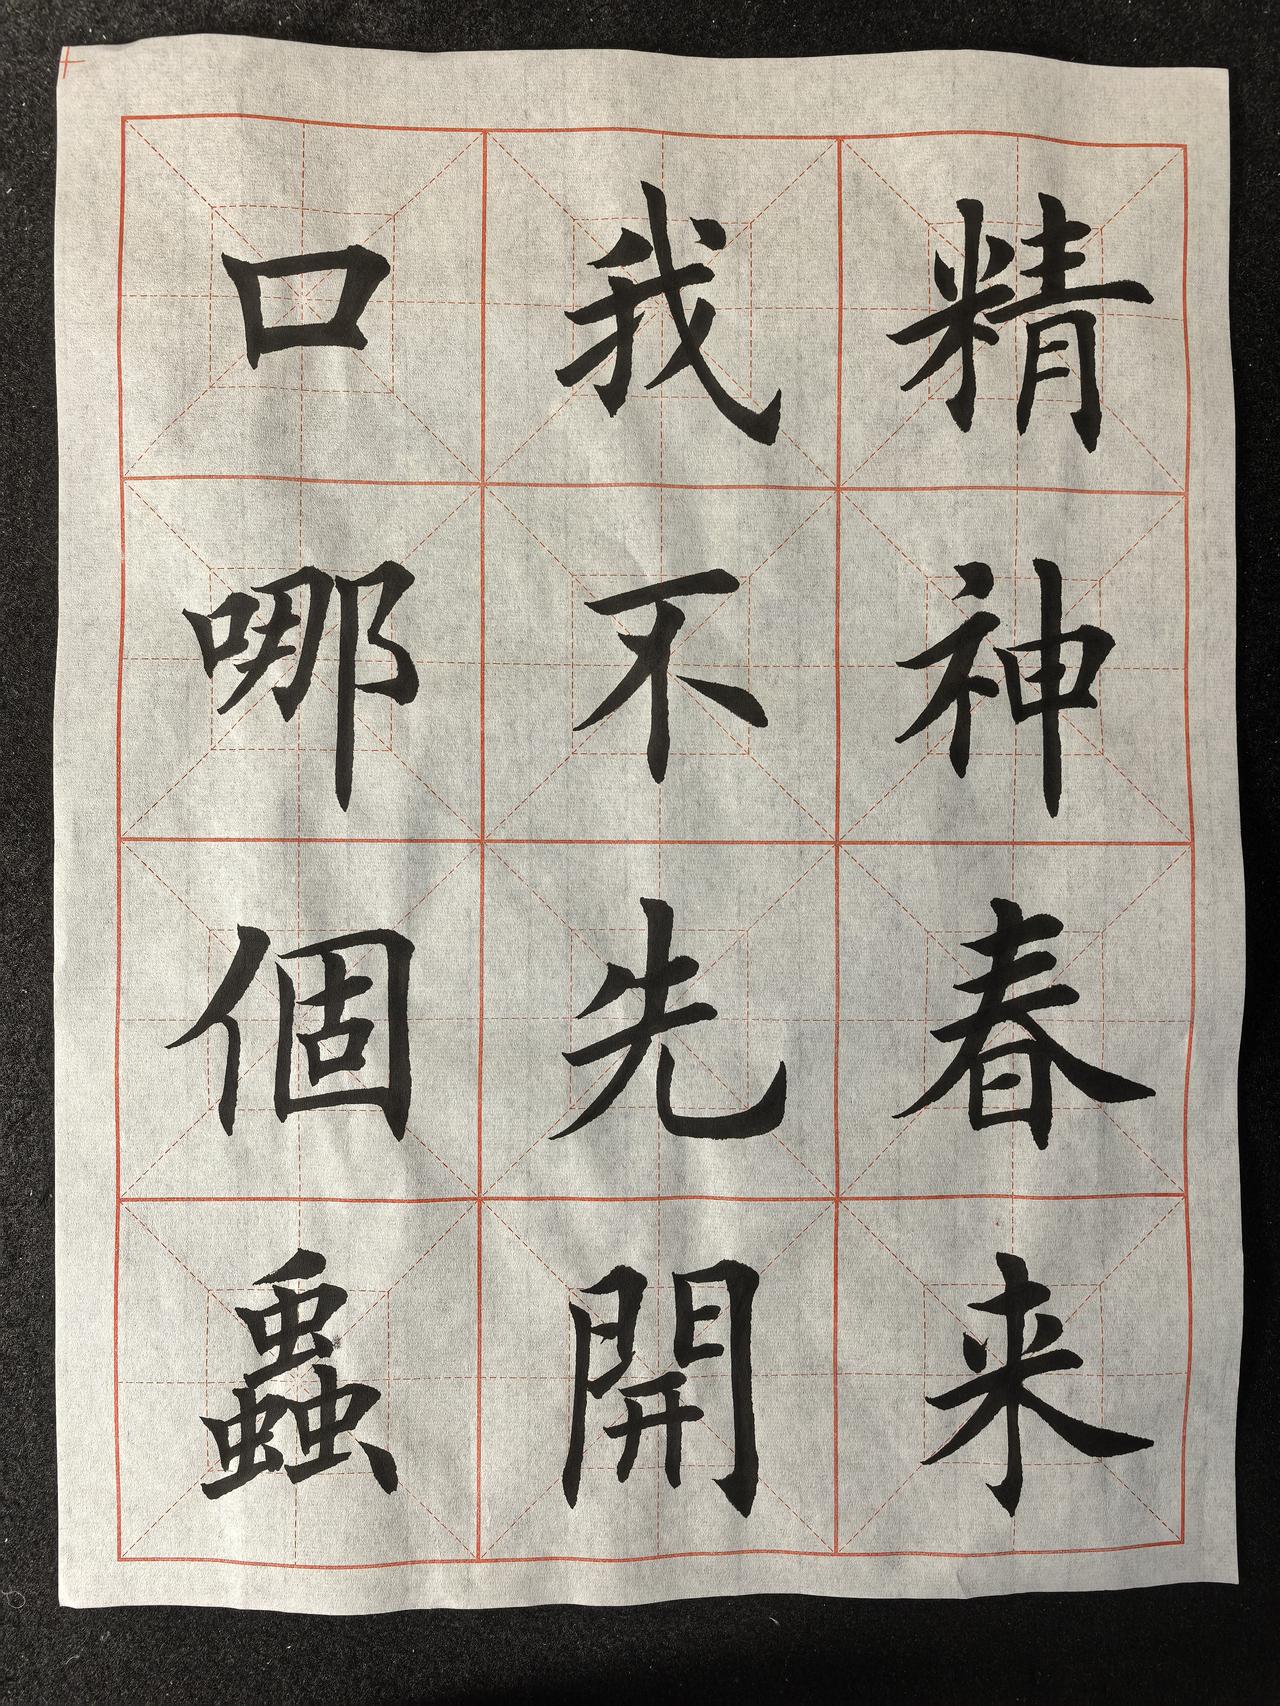 精神春来
我不先開
口哪個蟲